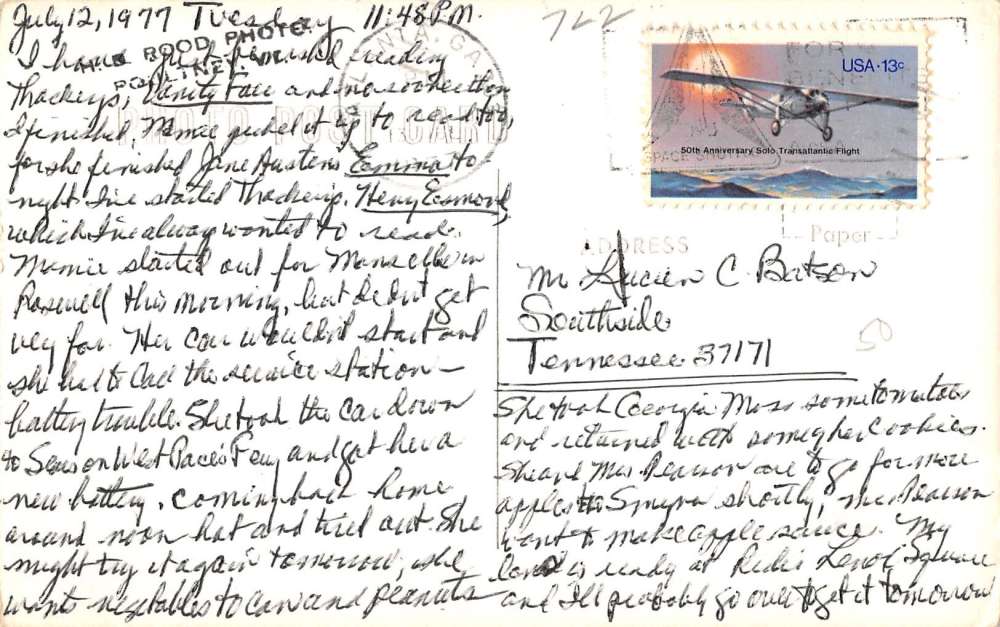 July 12, 1977 Tuesday 11:48 P.M.
I have just finished reading
Thackerys, Vanity Fair and no sooner than
I finished, Mamie picked it up to read too,
for she finished Jane Austens Emma to
night. I've started Thackerys. Henry Esmond,
which I've alway wanted to read.
Mamie started out for Mansell's in
Roswell this morning, but didn't get
very far. Her car wouldn't start and
she had to call the service station –
battery trouble. She took the car down
to Sears on West Pace's Ferry and got her a
new battery. Coming back home
around noon hot and tired out. She
might try it again tomorrow, she
wants vegetables to can and peanuts
She took Georgia Moss some tomatoes
and returned with some of her cookies.
She and Mrs. Pearson are to go for more
apples to Smyrna shortly, Mrs Pearson
want to make apple sauce. My
is ready at Rich's Lenox Square
and I'll probably go over to get it tomorrow
H.S. ROOD PHOTO.
POULTNEY, VT.
PHOTO POST CARD
ATLANTA, GA
722
FOR
SPACE SHUTTLE
USA · 13c
50th Anniversary Solo Transatlantic Flight
Paper
ADDRESS
Mr Lucien C Batson
Southside
Tennessee 37171
50